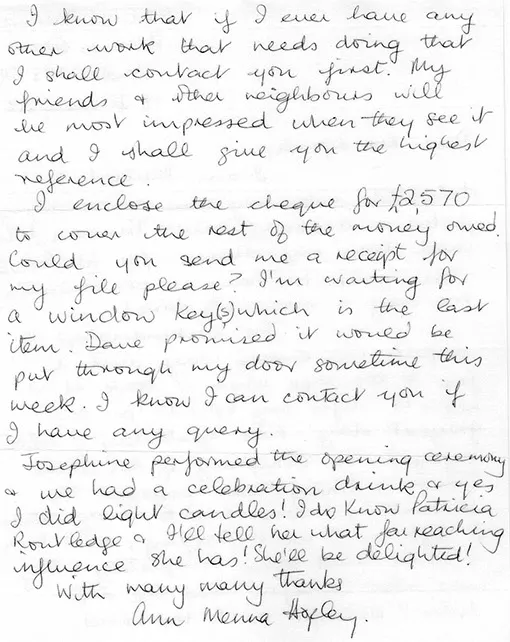 I know that if I ever have any
other work that needs doing that
I shall contact you first. My
friends & other neighbours will
be most impressed when they see it
and I shall give you the highest
reference.
I enclose the cheque for £2,570
to cover the rest of the money owed.
Could you send me a receipt for
my file please? I'm waiting for
a window key(s) which is the last
item. Dave promised it would be
put through my door sometime this
week. I know I can contact you if
I have any query.
Josephine performed the opening ceremony
& we had a celebration drink & yes
I did light candles! I do know Patricia
Routledge & I'll tell her what far reaching
influence she has! She'll be delighted!
With many many thanks
Ann Menna